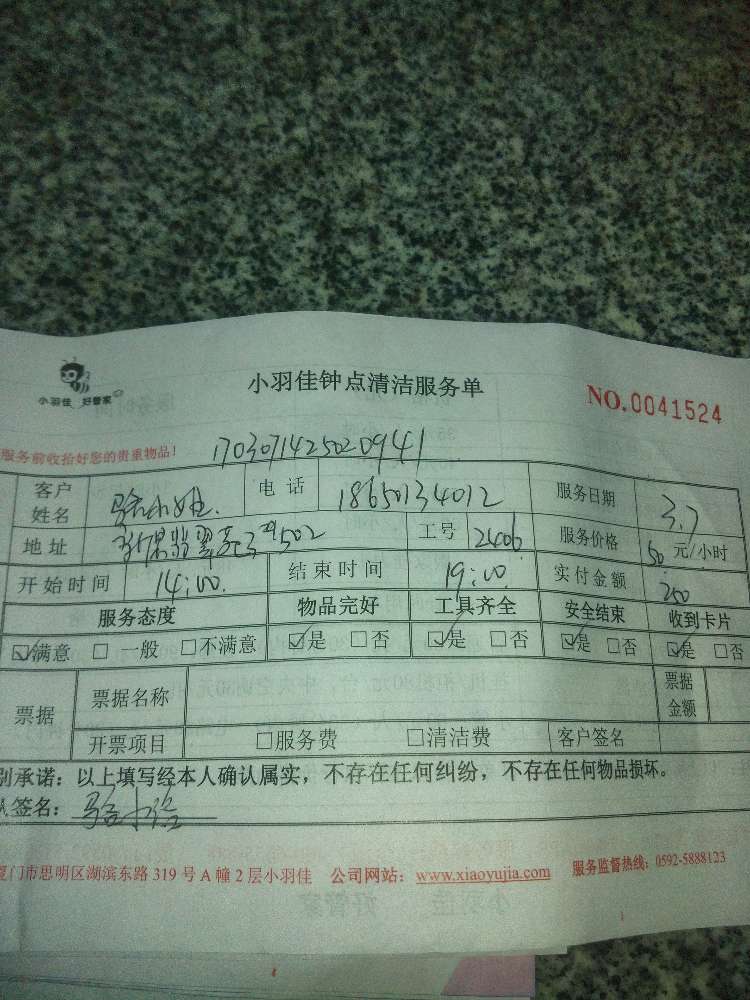 小羽佳 好管家
小羽佳钟点清洁服务单
NO.0041524
服务前收拾好您的贵重物品！
170307142502 0941
客户姓名 骆小姐 电话 18650134012 服务日期 3.7
地址 翡翠 502 工号 2406 服务价格 50 元/小时
开始时间 14:00 结束时间 19:00 实付金额 250
服务态度 物品完好 工具齐全 安全结束 收到卡片
☑满意 □一般 □不满意 ☑是 □否 ☑是 □否 ☑是 □否 ☑是 □否
票据 票据名称 票据金额
开票项目 □服务费 □清洁费 客户签名
别承诺：以上填写经本人确认属实，不存在任何纠纷，不存在任何物品损坏。
签名：骆小
厦门市思明区湖滨东路 319 号 A 幢 2 层小羽佳 公司网站：www.xiaoyujia.com 服务监督热线：0592-5888123